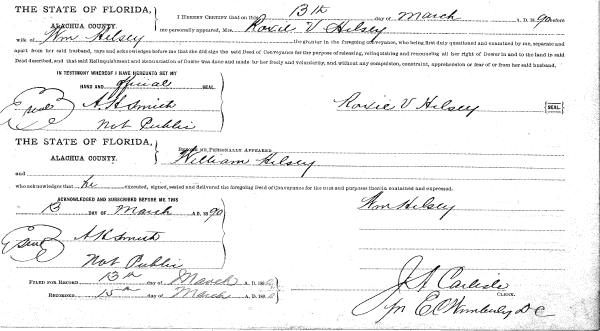 THE STATE OF FLORIDA,
ALACHUA COUNTY.
I HEREBY CERTIFY that on this 13th day of March A. D. 1890 before
me personally appeared, Mrs. Roxie V Hilsey
wife of Wm Hilsey the grantor in the foregoing conveyance, who being first duly questioned and examined by me, separate and
apart from her said husband, says and acknowledges before me that she did sign the said Deed of Conveyance for the purpose of releasing, relinquishing and renouncing all her right of Dower in and to the land in said
Deed described, and that said Relinquishment and Renunciation of Dower was done and made by her freely and voluntarily, and without any compulsion, constraint, apprehension or fear of or from her said husband,
IN TESTIMONY WHEREOF I HAVE HEREUNTO SET MY
HAND AND official SEAL.
Seal A. H Smith
Not Public
Roxie V Hilsey SEAL.
THE STATE OF FLORIDA,
ALACHUA COUNTY.
BEFORE ME PERSONALLY APPEARED
William Hilsey
and
who acknowledges that he executed, signed, sealed and delivered the foregoing Deed of Conveyance for the uses and purposes therein contained and expressed.
ACKNOWLEDGED AND SUBSCRIBED BEFORE ME THIS
13 DAY OF March A. D. 1890
Wm Hilsey
Seal A H Smith
Not Public
FILED FOR RECORD 13th day of March A. D. 1890
RECORDED 15th day of March A. D. 1890
J A Carlisle
CLERK.
pr E C Wimberly D C